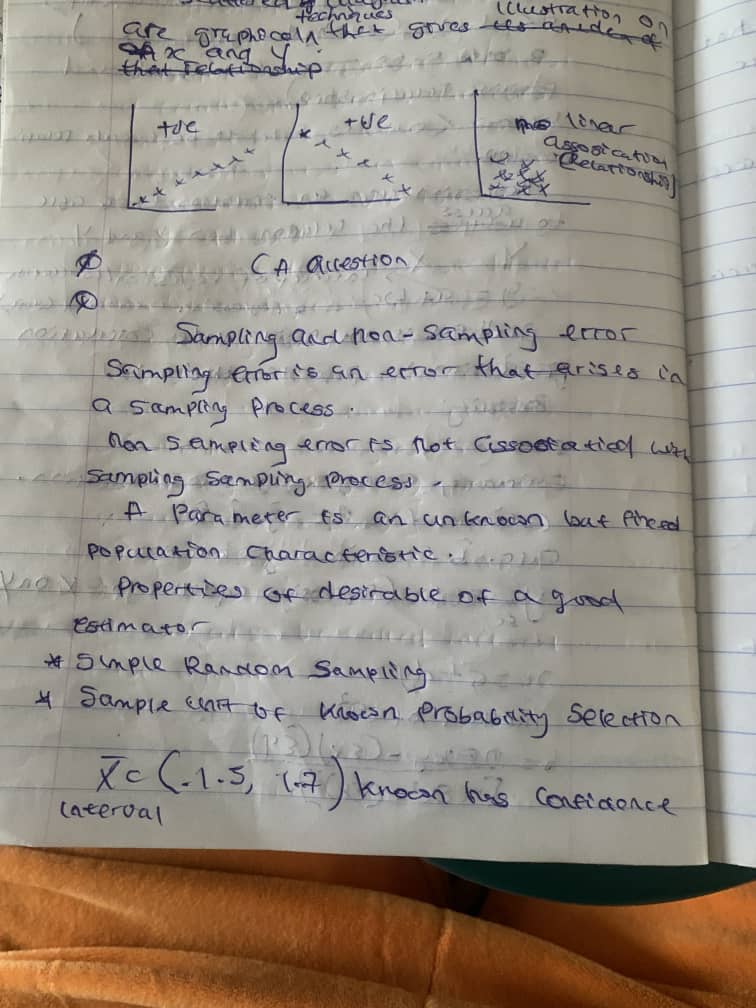 techniques Illustration on
are graphocaln that gives its an idea of
x and y
that relationship
+ve
+ve
linear
Assosication
(Relationship)
CA Question
Sampling and non-sampling error
Sampling error is an error that arises in
a sampling process.
Non sampling error is not assosiatied with
sampling sampling process.
A Parameter is an unknown but fixed
population characteristic.
Properties of desirable of a good
estimator
* Simple Random Sampling
* Sample unit of known probability selection
X̄ = (.1.5, 1.7) known has confidence
interval